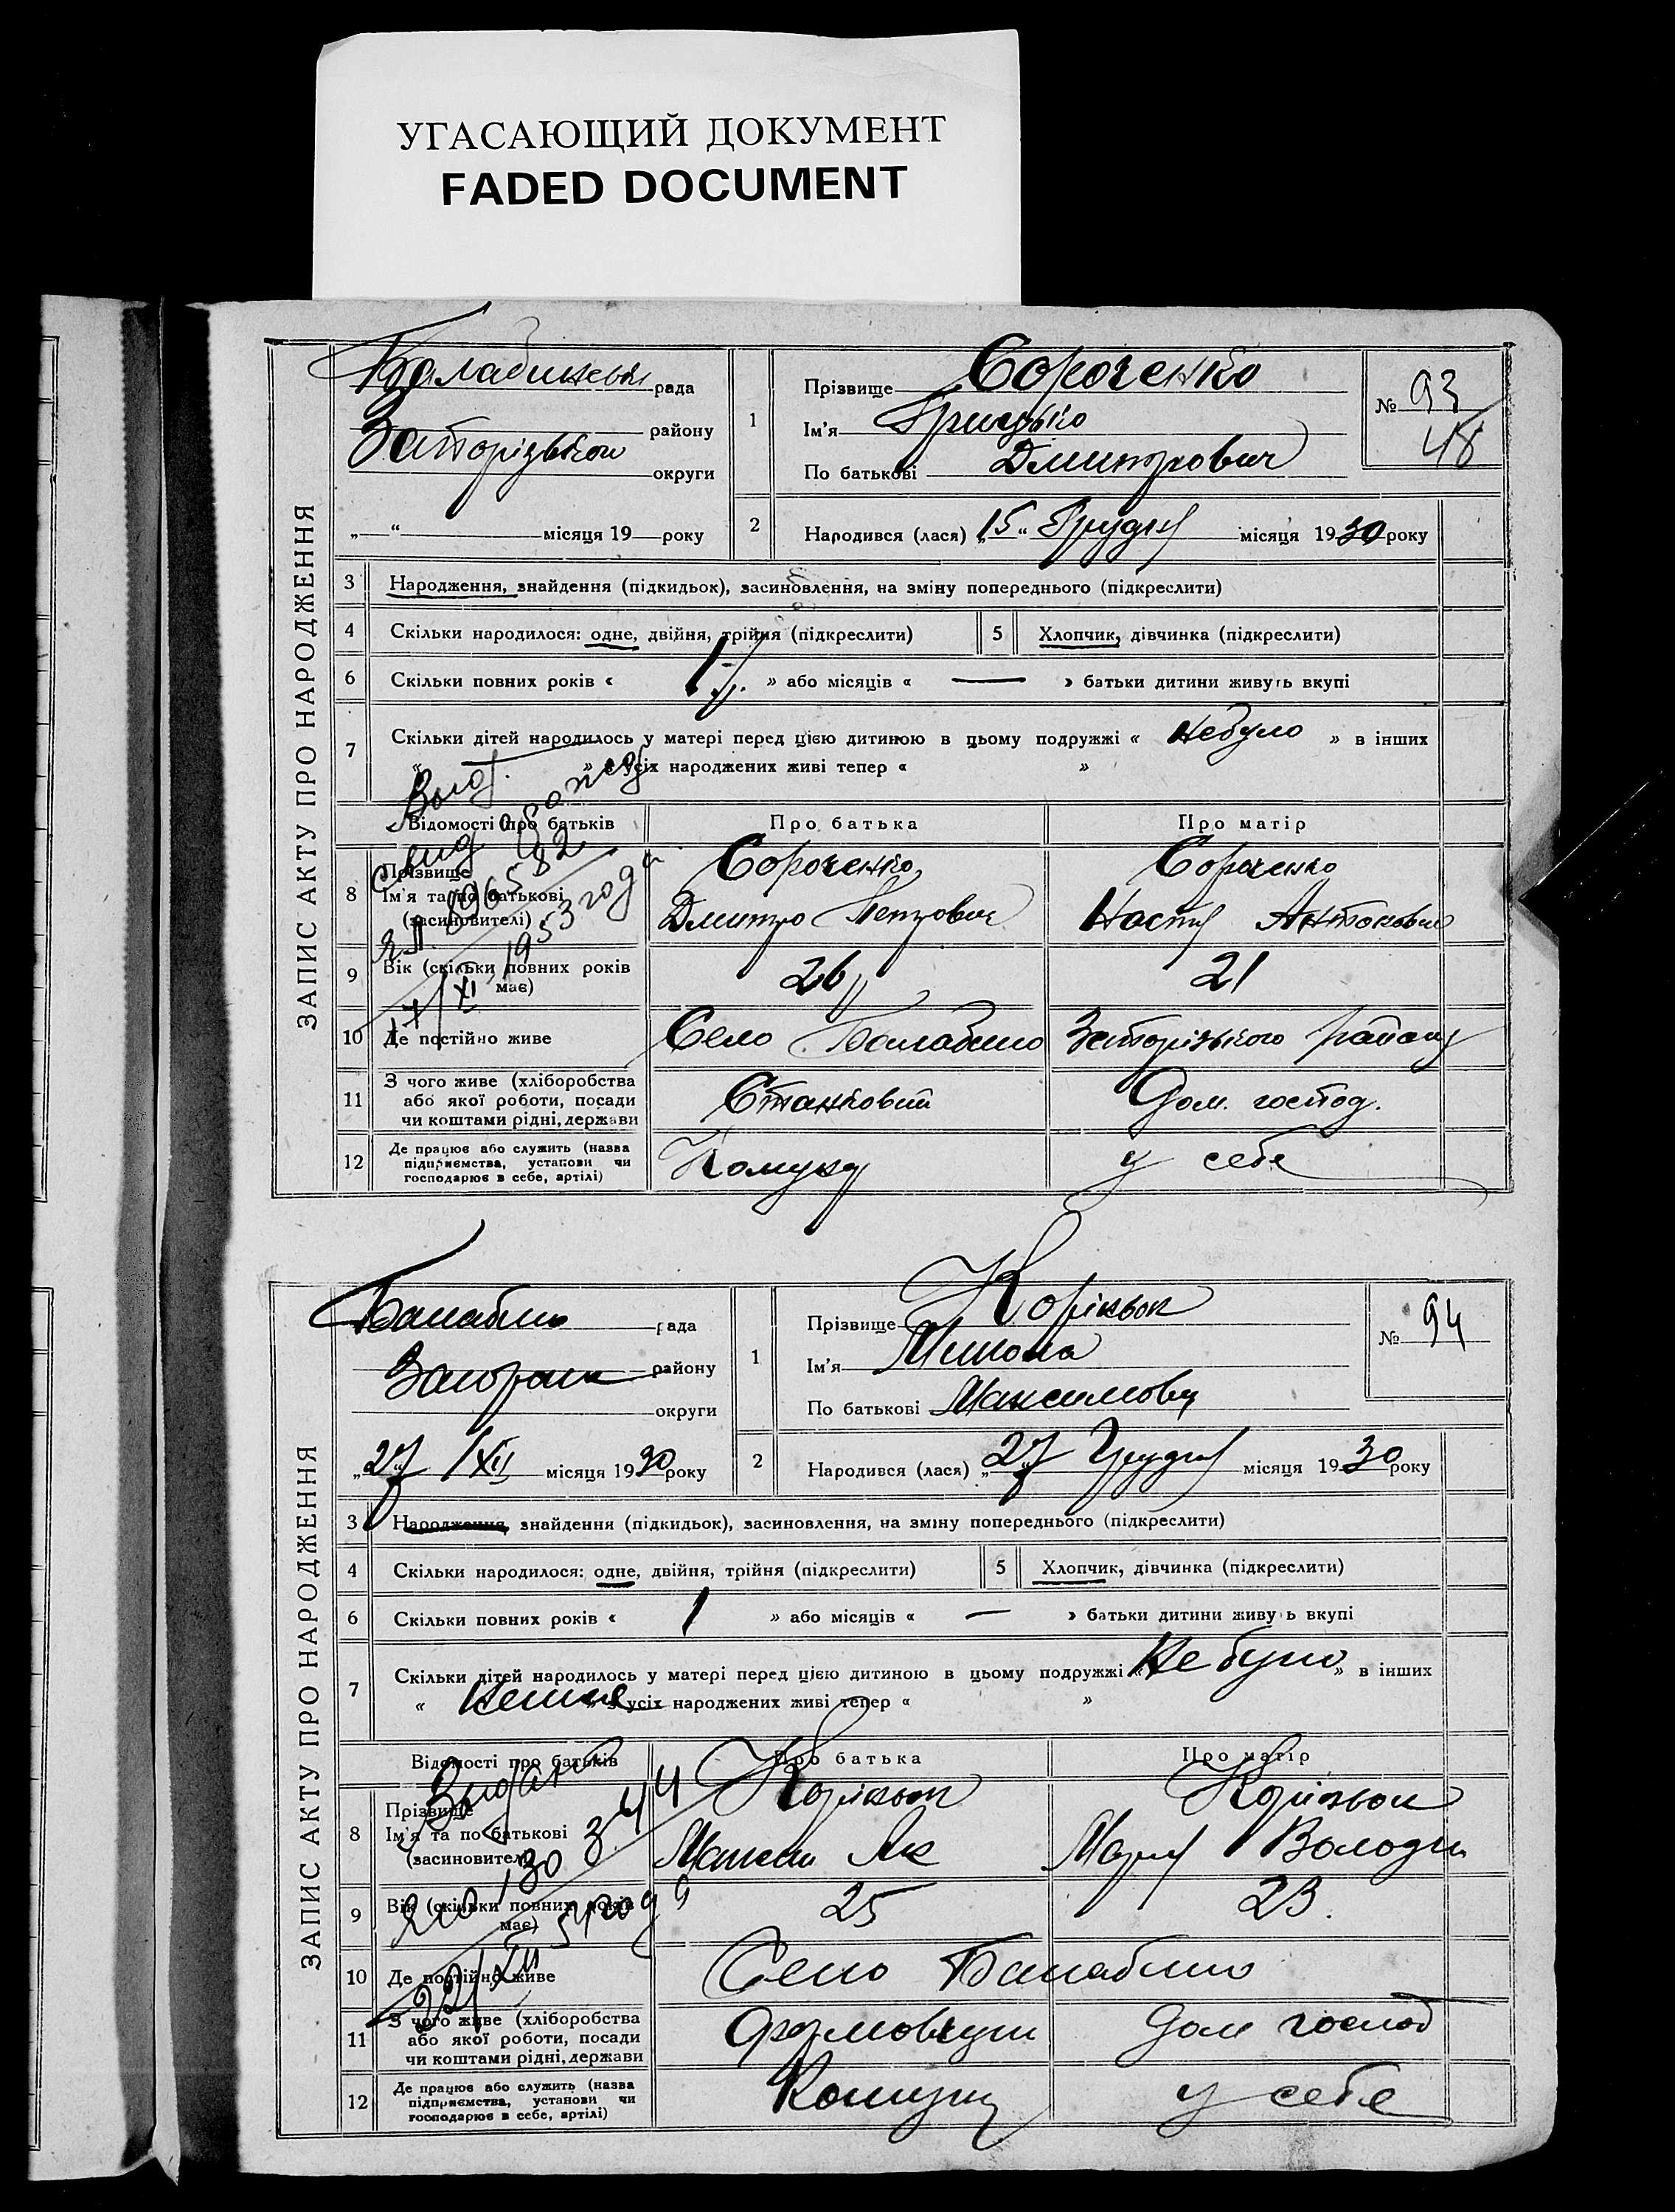 УГАСАЮЩИЙ ДОКУМЕНТ
FADED DOCUMENT
ЗАПИС АКТУ ПРО НАРОДЖЕННЯ
Балабинської рада
району
Запорізької
округи
„ “ місяця 19 року
1
Прізвище Сороченко
Ім'я Грицько
По батькові Дмитрович
№ 93
48
2
Народився (лася) „15“ Грудня місяця 1930 року
3 Народження, знайдення (підкидьок), засиновлення, на зміну попереднього (підкреслити)
4 Скільки народилося: одне, двійня, трійня (підкреслити)
5 Хлопчик, дівчинка (підкреслити)
6 Скільки повних років « 1 » або місяців « — » батьки дитини живуть вкупі
7 Скільки дітей народилось у матері перед цією дитиною в цьому подружжі « небуло » в інших
« — » з усіх народжених живі тепер « »
Відомості про батьків
Про батька
Про матір
8 Прізвище
Ім'я та по батькові
(засновителі)
Сороченко
Дмитро Петрович
Сороченко
Настя Антоновна
9 Вік (скільки повних років
має)
26
21
10 Де постійно живе
Село Балабино Запорізького району
11 З чого живе (хліборобства
або якої роботи, посади
чи коштами рідні, держави
Становий
Дом. господ.
12 Де працює або служить (назва
підприємства, установи чи
господарює в себе, артілі)
Комунар
у себе
17/XI 1953 года
ЗАПИС АКТУ ПРО НАРОДЖЕННЯ
Балабино рада
району
округи
„27“ XII місяця 1930 року
1
Прізвище Коріньок
Ім'я Микола
По батькові Максимович
№ 94
2
Народився (лася) „27“ Грудня місяця 1930 року
3 Народження, знайдення (підкидьок), засиновлення, на зміну попереднього (підкреслити)
4 Скільки народилося: одне, двійня, трійня (підкреслити)
5 Хлопчик, дівчинка (підкреслити)
6 Скільки повних років « 1 » або місяців « — » батьки дитини живуть вкупі
7 Скільки дітей народилось у матері перед цією дитиною в цьому подружжі « Не було » в інших
« Немає » з усіх народжених живі тепер « »
Відомості про батьків
Про батька
Про матір
8 Прізвище
Ім'я та по батькові
(засиновителі)
Коріньок
Максим Як
Коріньок
Мария Володим
9 Вік (скільки повних років
має)
25
23.
10 Де постійно живе
Село Балабино
11 З чого живе (хліборобства
або якої роботи, посади
чи коштами рідні, держави
Формовщик
Дом господ
12 Де працює або служить (назва
підприємства, установи чи
господарює в себе, артілі)
Комунар
у себе
22/XII 54 года